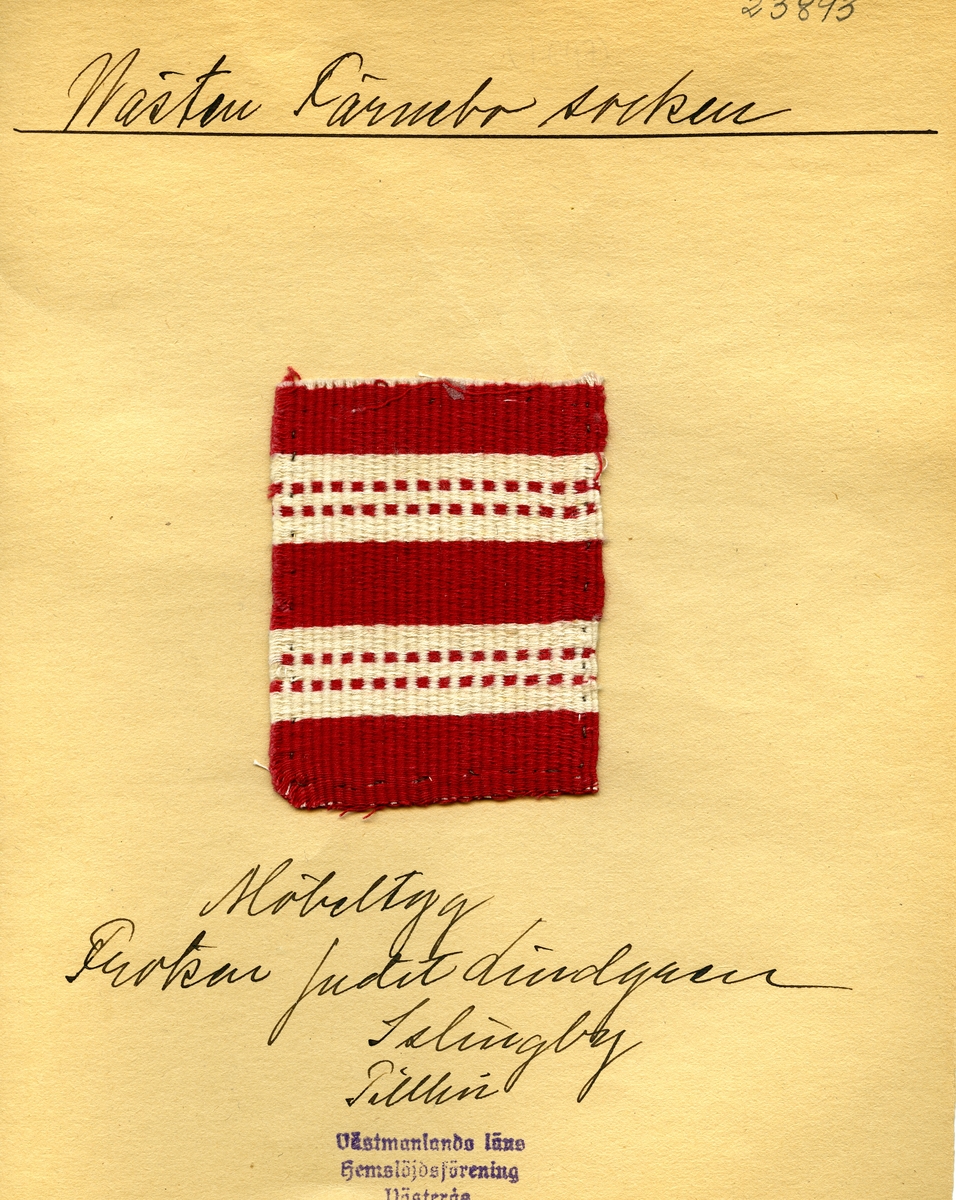 23893
Wästen Färnebo socken
Möbeltyg
Fröken Judit Lindgren
Islingby
Tillhör
Västmanlands läns
Hemslöjdsförening
Västerås